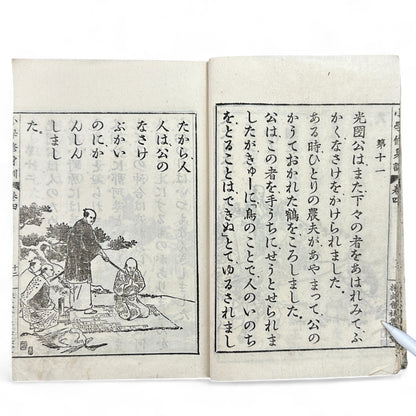 小學修身訓 卷四
第十一
光圀公はまた下々の者をあはれみてふ
かくなさけをかけられました。
ある時ひとりの農夫があやまつて、公の
かうておかれた鶴をころしました。
公はこの者を手うちにせうとせられま
したがきゅーに「鳥のことで人のいのち
をとることはできぬ」とてゆるされまし
たから、人
人は公の
なさけ
ぶかい
のにか
んしん
しまし
た。